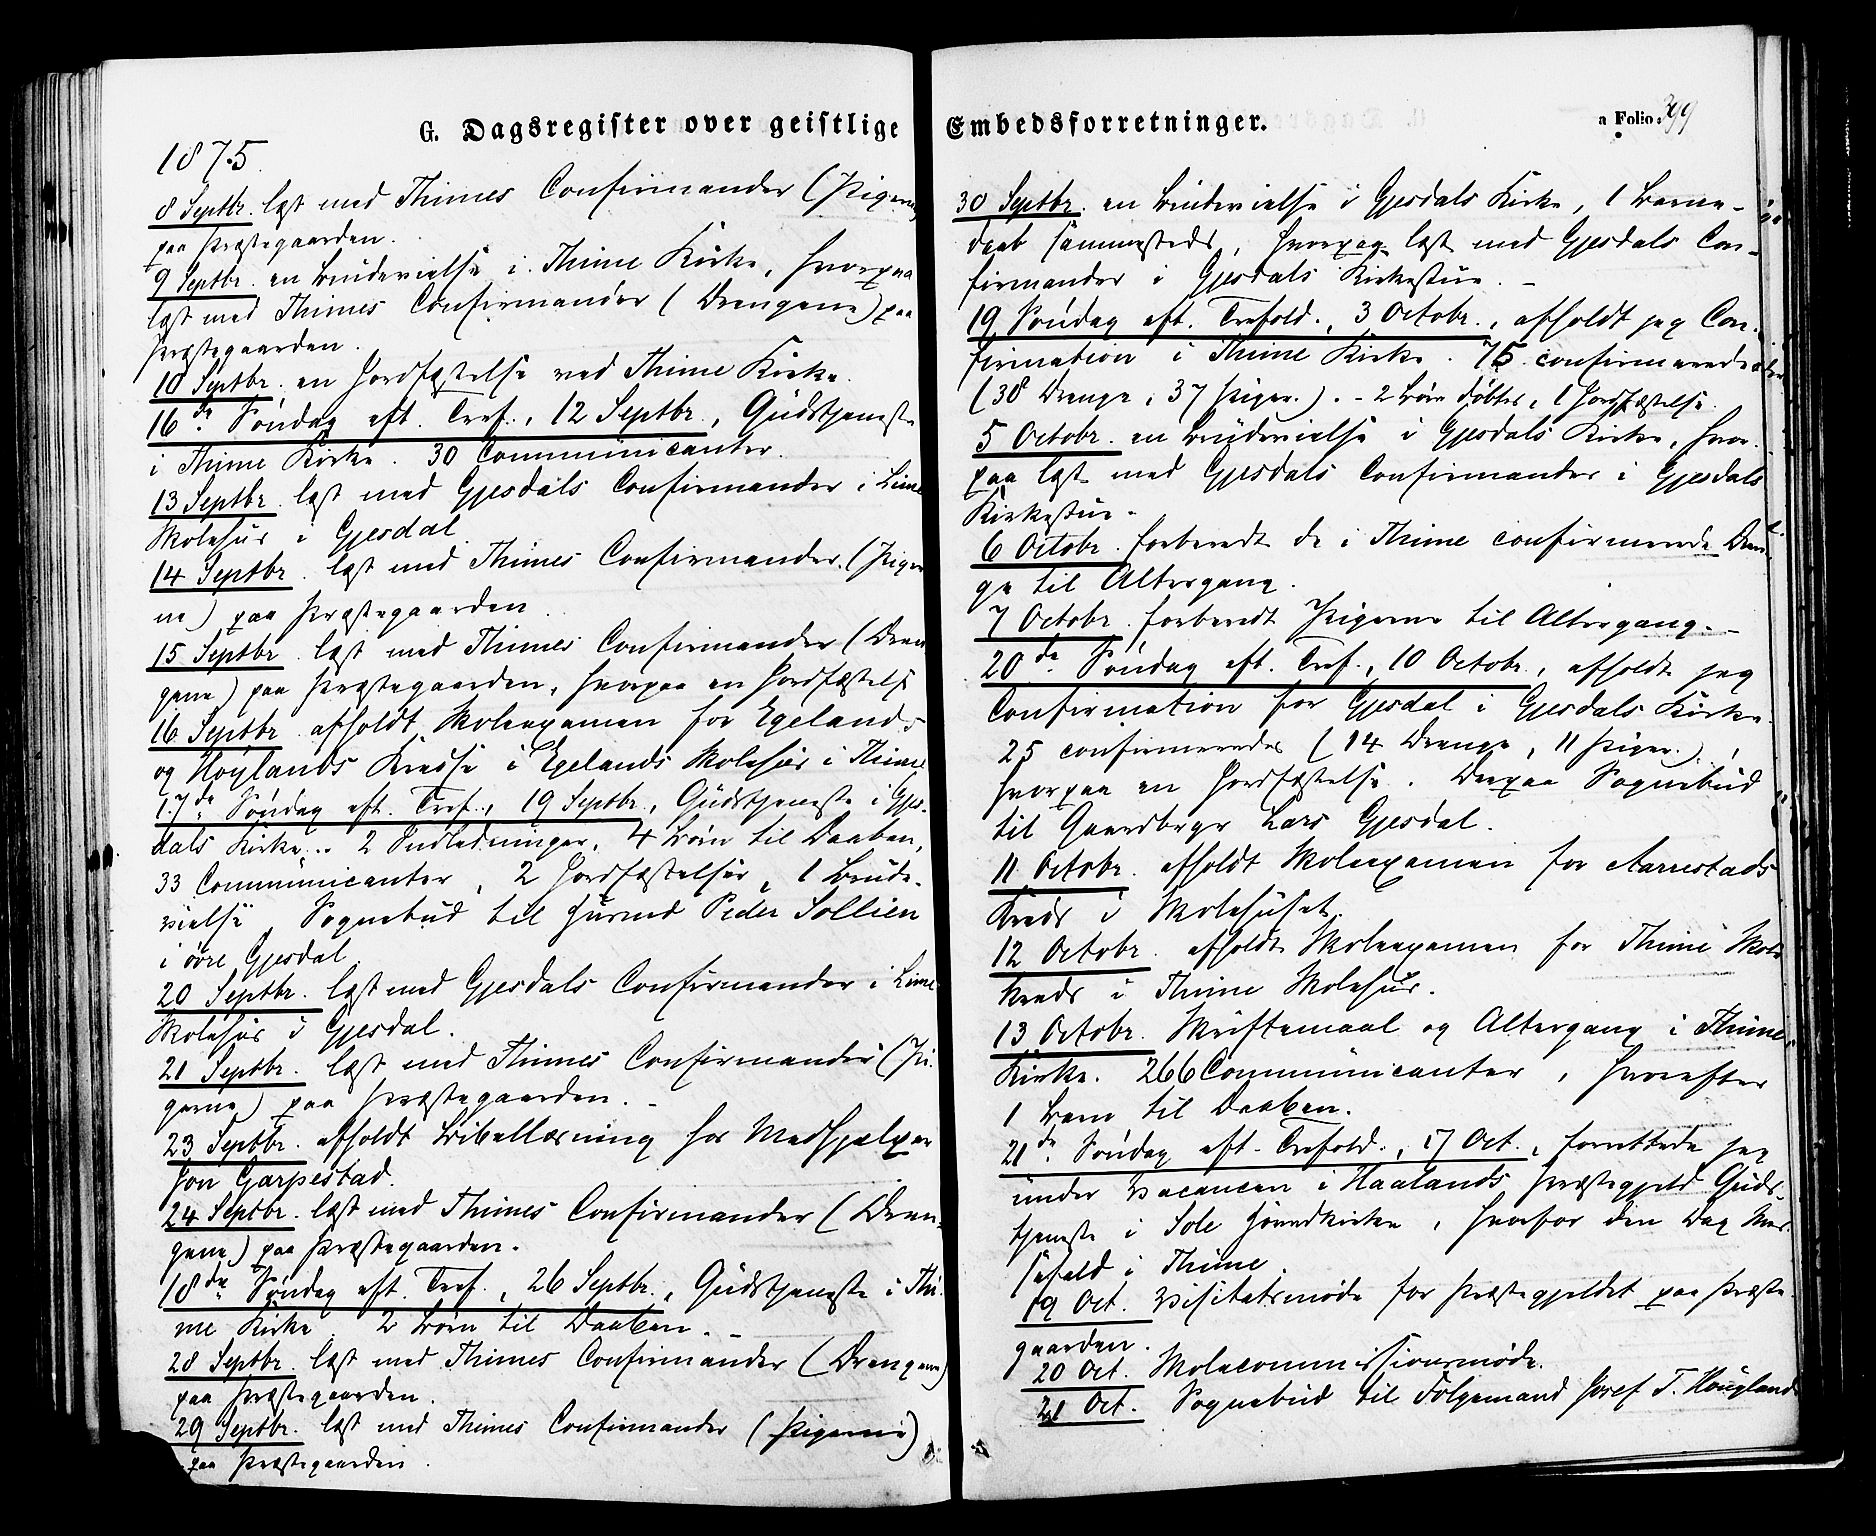 G. Dagsregister over geistlige Embedsforretninger.
a Folio. 399
1875.
8 Septbr. læst med Thimes Confirmander (Pigerne)
paa Præstegaarden.
9 Septbr. en Brudevielse i Thime Kirke, hvorpaa
læst med Thimes Confirmander (Drengene) paa
Præstegaarden.
10 Septbr. en Jordfæstelse ved Thime Kirke.
16de Søndag eft. Tref., 12 Septbr., Gudstjeneste
i Thime Kirke. 30 Communicanter.
13 Septbr. læst med Gjesdals Confirmander i Lime
Skolehus i Gjesdal.
14 Septbr. læst med Thimes Confirmander (Piger
ne) paa Præstegaarden.
15 Septbr. læst med Thimes Confirmander (Dren
gene) paa Præstegaarden, hvorpaa en Jordfæstelse
16 Septbr. afholdt Skoleexamen for Egelands
og Høylands Kredse i Egelands Skolehus i Thime
17de Søndag eft. Tref., 19 Septbr., Gudstjeneste i Gjes-
dals Kirke. 2 Indledninger, 4 Børn til Daaben,
33 Communicanter, 2 Jordfæstelser, 1 Brude-
vielse, Sognebud til Husmd Peder Sollien
i øvre Gjesdal.
20 Septbr. læst med Gjesdals Confirmander i Lime
Skolehus i Gjesdal.
21 Septbr. læst med Thimes Confirmander (Pi-
gerne) paa Præstegaarden.
23 Septbr. afholdt Bibellæsning hos Medhjelper
Jon Garpestad.
24 Septbr. læst med Thimes Confirmander (Dren-
gene) paa Præstegaarden.
18de Søndag eft. Tref., 26 Septbr., Gudstjeneste i Thi-
me Kirke. 2 Børn til Daaben.
28 Septbr. læst med Thimes Confirmander (Drengene)
paa Præstegaarden.
29 Septbr. læst med Thimes Confirmander (Pigerne)
paa Præstegaarden.
30 Septbr. en Brudevielse i Gjesdals Kirke, 1 Barne-
daab sammesteds, hvorpaa læst med Gjesdals Con-
firmander i Gjesdals Kirkestue.
19 Søndag eft. Trefold., 3 Octobr., afholdt jeg Con-
firmation i Thime Kirke. 75 confirmeredes
(38 Drenge, 37 Piger.). - 2 Børn døbtes, 1 Jordfæstelse.
5 Octobr. en Brudevielse i Gjesdals Kirke, hvor-
paa læst med Gjesdals Confirmander i Gjesdals
Kirkestue.
6 Octobr. forberedt de i Thime confirmerede Dren-
ge til Altergang.
7 Octobr. forberedt Pigerne til Altergang.
20de Søndag eft. Tref., 10 Octobr., afholdt jeg
Confirmation for Gjesdal i Gjesdals Kirke.
25 confirmeredes (14 Drenge, 11 Piger.),
hvorpaa en Jordfæstelse. Derpaa Sognebud
til Gaardbrgr Lars Gjesdal.
11 Octobr. afholdt Skoleexamen for Aarrestads
Kreds i Skolehuset.
12 Octobr. afholdt Skoleexamen for Thime Skole
kreds i Thime Skolehus.
13 Octobr. Skriftemaal og Altergang i Thime
Kirke. 266 Communicanter, hvorefter
1 Barn til Daaben.
21de Søndag eft. Trefold., 17 Oct., forrettede jeg
under Vacancen i Haalands Præstegjeld Guds-
tjeneste i Sole Hovedkirke, hvorfor den Dag Mes-
sefald i Thime.
19 Oct. Visitatsmøde for Præstegjeldet paa Præste-
gaarden.
20 Oct. Skolecommissionsmøde.
21 Oct. Sognebud til Følgemand Josef T. Haugland